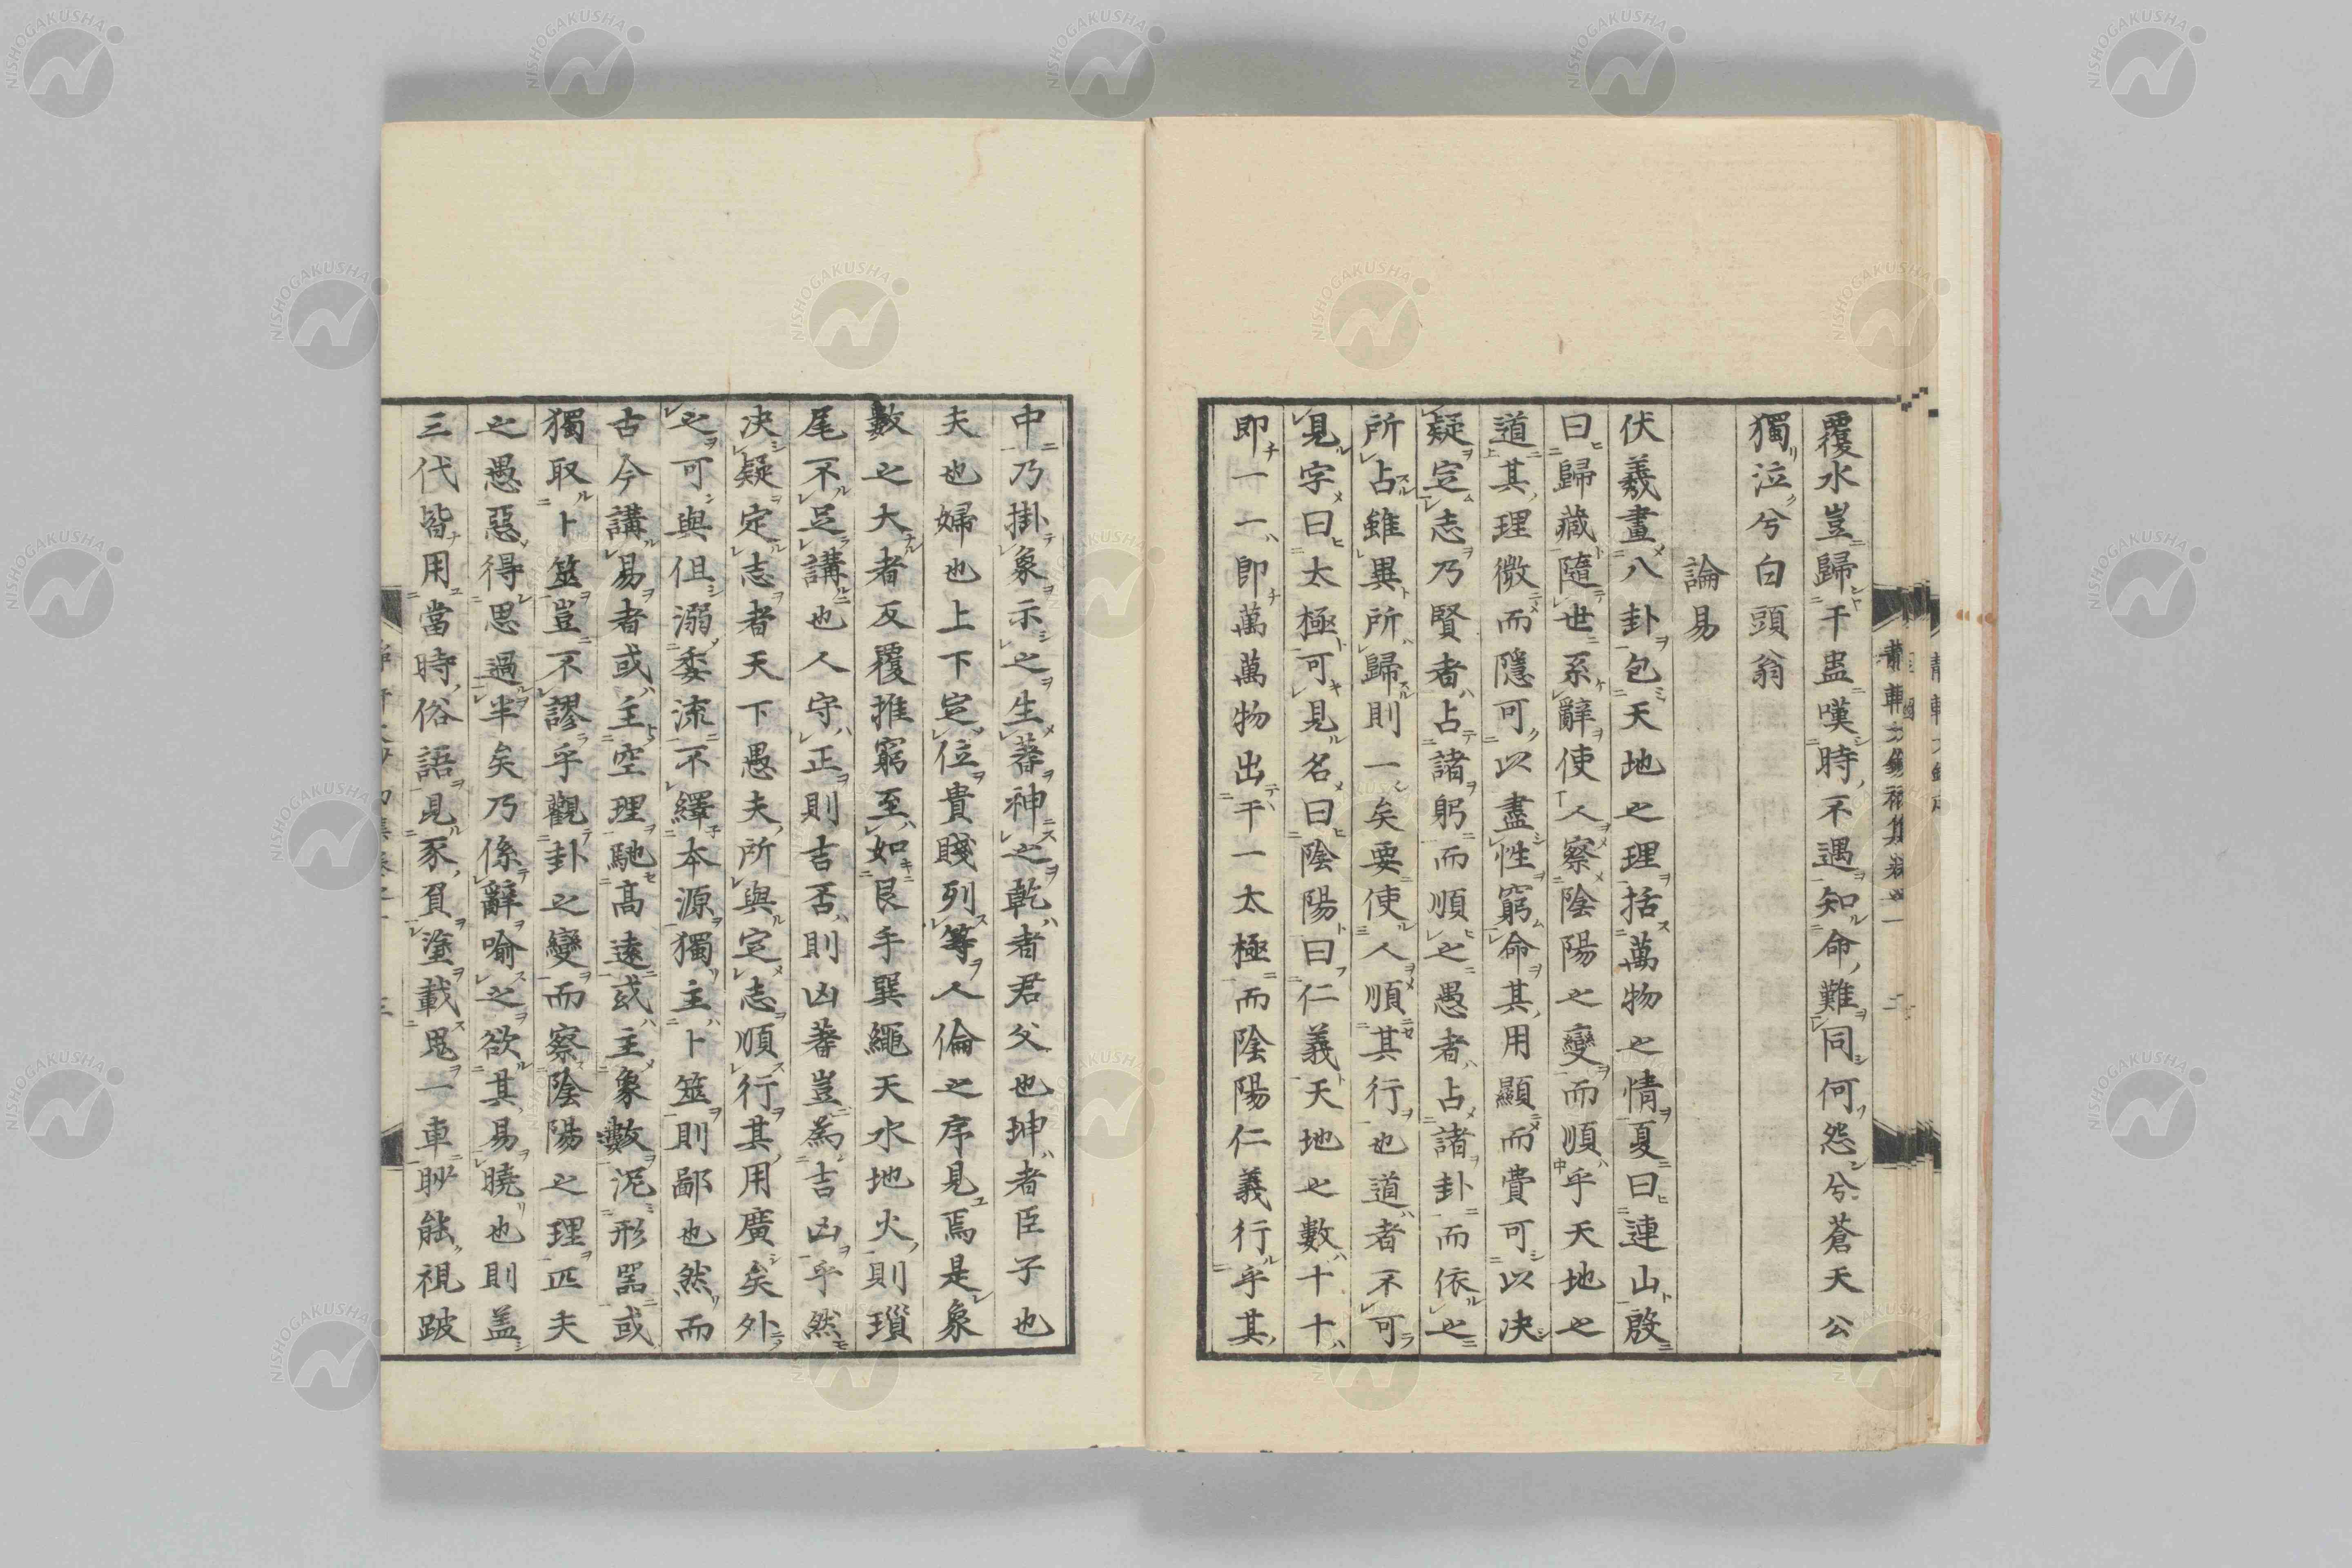 覆水豈歸干蛊嘆時不遇知命難同何怨兮蒼天公
獨泣兮白頭翁
論易
伏羲畫八卦包天地之理括萬物之情夏曰連山殷
曰歸藏隨世系辭使人察陰陽之變而順乎天地之
道其理微而隱可以盡性窮命其用顯而費可以決
疑定志乃賢者占諸躬而順之愚者占諸卦而依之
所占雖異所歸則一矣要使人順其行也道者不可
見字曰太極可見名曰陰陽曰仁義天地之數十十
即一一即萬萬物出于一太極而陰陽仁義行乎其
中乃掛象示之生蓍神之乾者君父也坤者臣子也
夫也婦也上下定位貴賤列等人倫之序見焉是象
數之大者反覆推窮至如艮手巽繩天水地火則瑣
尾不足講也人守正則吉否則凶蓍豈為吉凶乎然
决疑定志者天下愚夫所與定志順行其用廣矣外
之可與但溺委流不繹本源獨主卜筮則鄙也然而
古今講易者或主空理馳高遠或主象數泥形器或
獨取卜筮豈不謬乎觀卦之變而察陰陽之理匹夫
之愚惡得思過半矣乃係辭喻之欲其易曉也則盖
三代皆用當時俗語見豕負塗載鬼一車眇能視跛
NISHOGAKUSHA